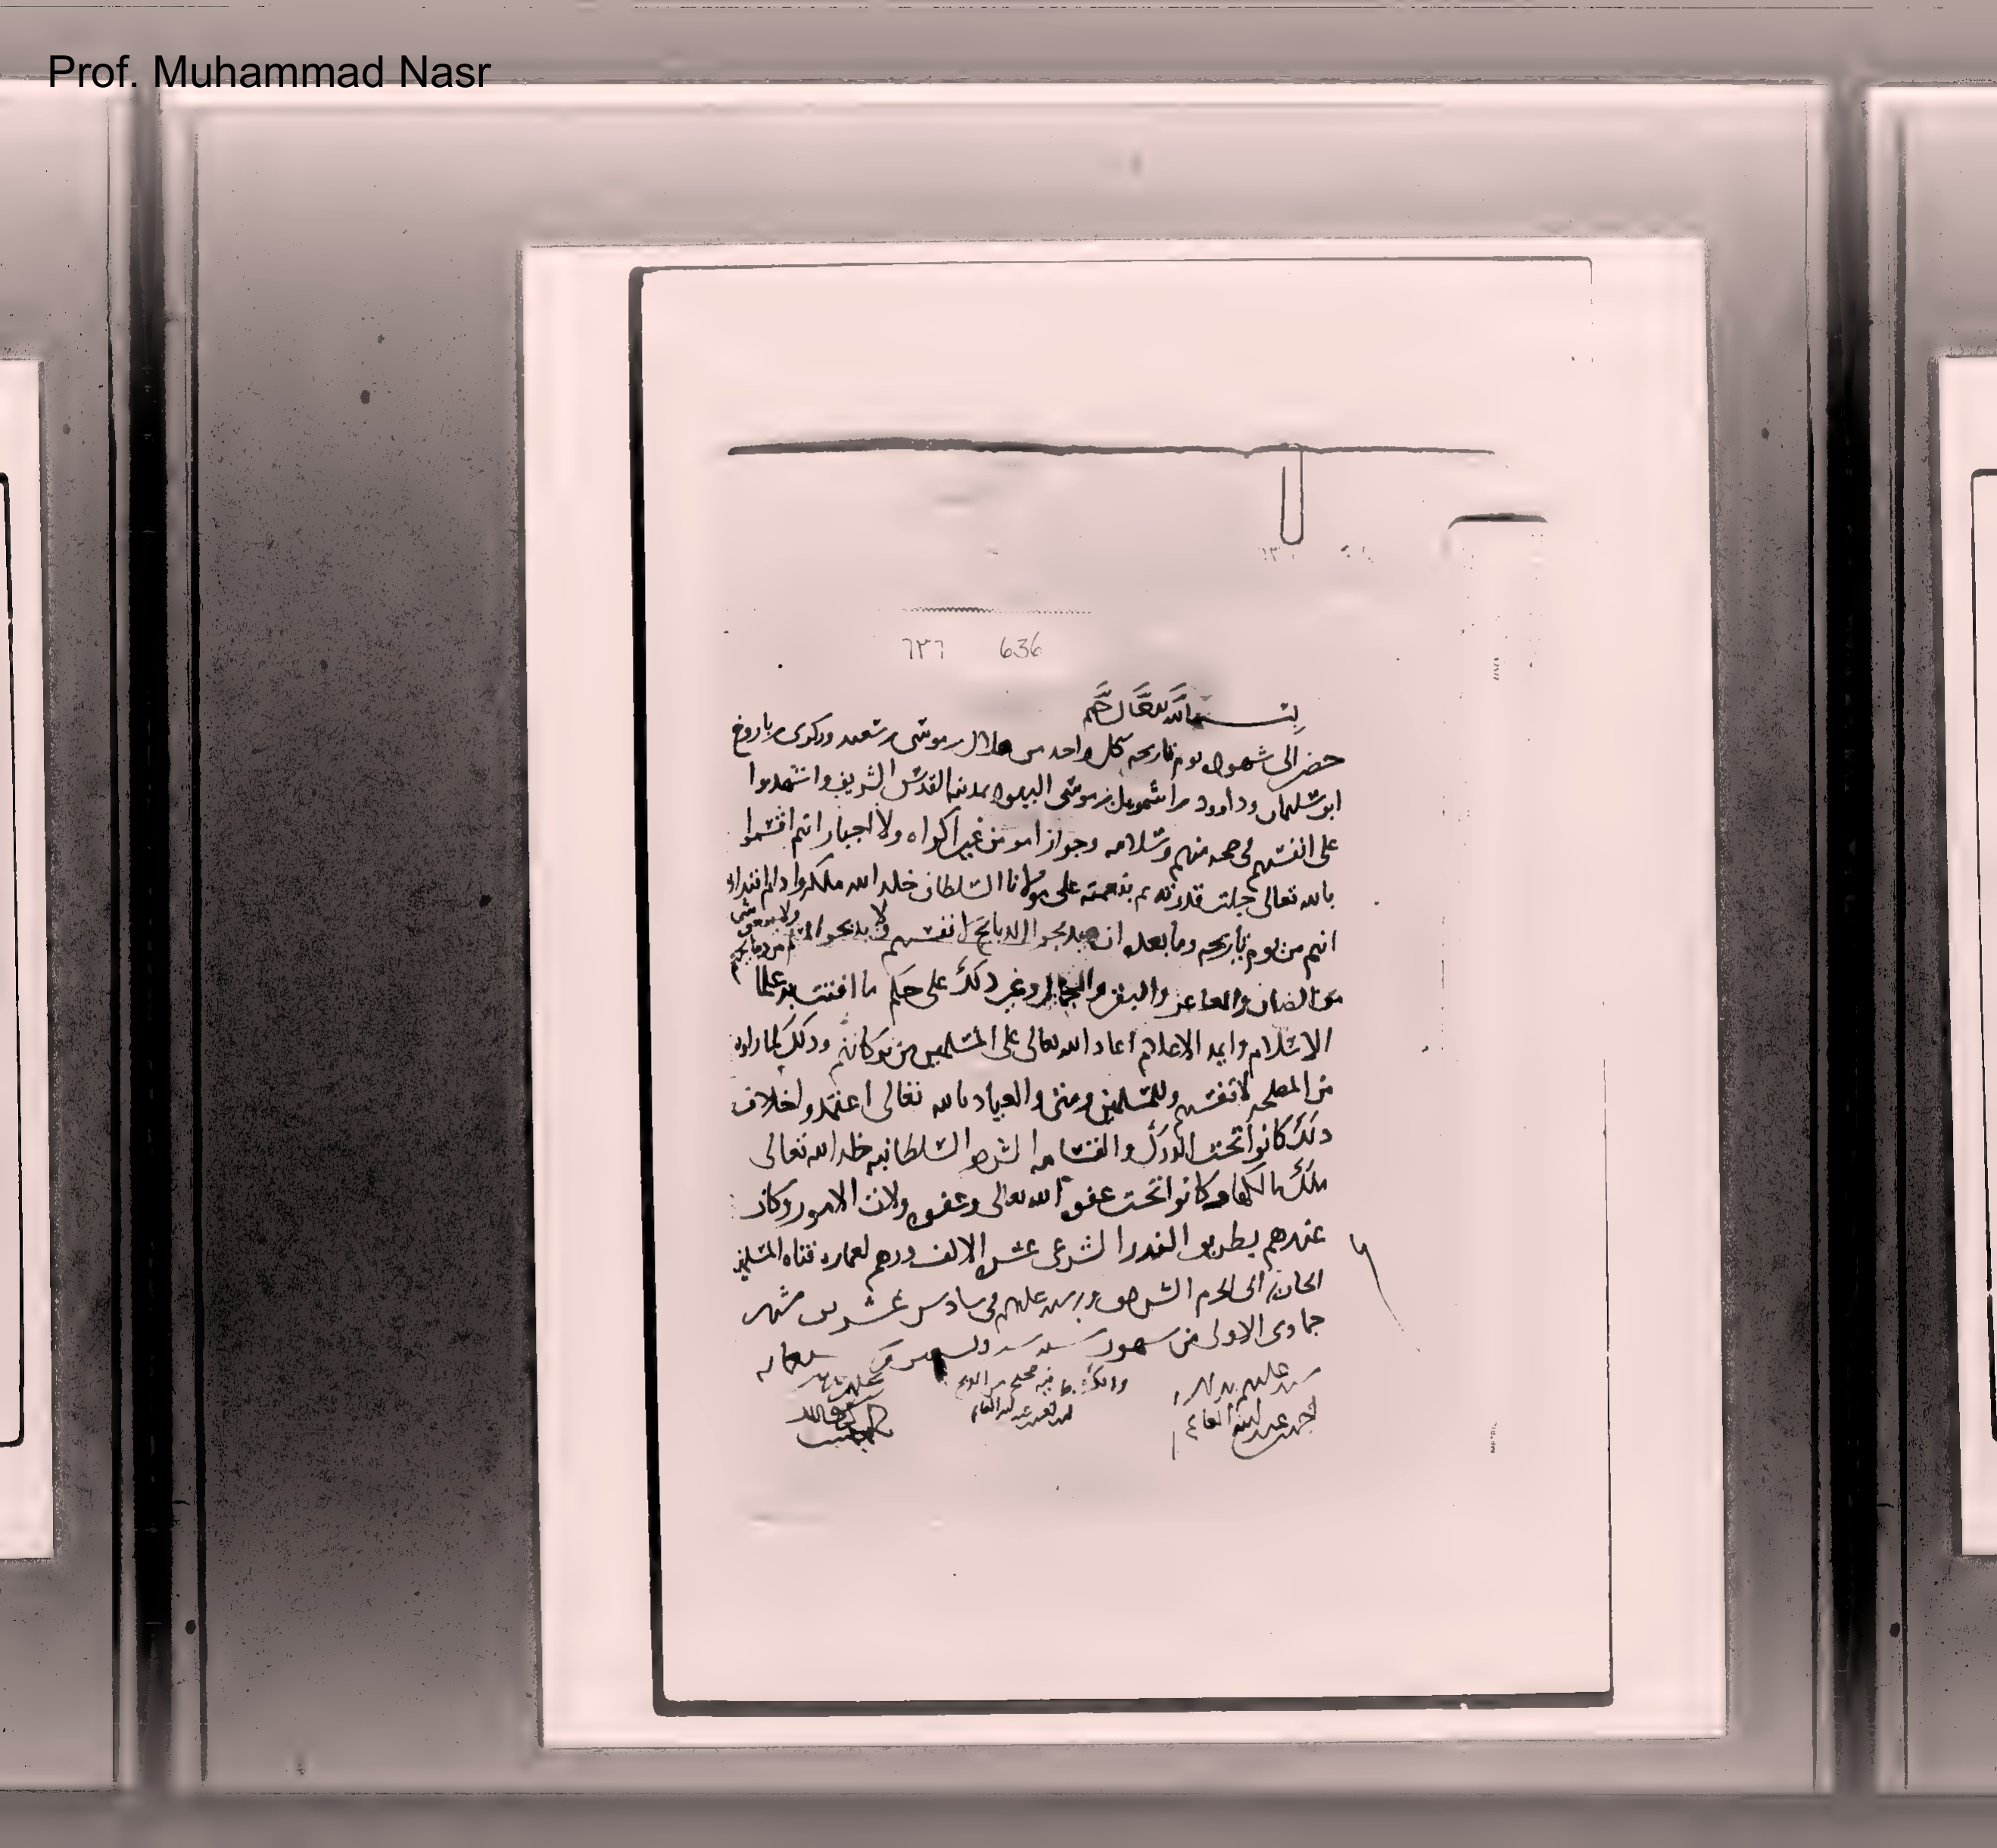 Prof. Muhammad Nasr
٦٣٦ 636
بسم الله الرحمن الرحيم
حضر الى شهوده يوم تاريخه كل واحد من هلال بن موسى بن سعيد وزكرى بن باروخ
ابو سليمان وداوود بن اشمويل بن موسى اليهود بمدينة القدس الشريف واشهدوا
على انفسهم في صحة منهم وسلامة وجواز امر من غير اكراه ولا اجبار انهم اقسموا
بالله تعالى جلت قدرته ثم بنعمة على مولانا السلطان خلد الله ملكه
انهم من يوم تاريخه وما بعده ان يذبحوا الذبايح لا نفسهم لا يذبحوا
ولا يبيعوا شي
من الضان والماعز والبقر والجمال وغير ذلك على حكم ما افتت به علما
الاسلام وايمة الاعلام اعاد الله تعالى على المسلمين من بركاتهم وذلك لما راوه
من المصلحة لانفسهم وللمسلمين ومتى والعياذ بالله تعالى اعتمدوا خلاف
ذلك كانوا تحت الدرك والقسامة الشريفة السلطانية خلد الله تعالى
ملك مالكها وكانوا تحت عفو الله تعالى وعفو ولات الامور وكان
عندهم بطريق النذر الشرعي عشرة الالف درهم لعمارة قناة المسلمين
الى الحرم الشريف وبه شهد عليهم في سادس عشرين شهر
جمادى الاولى من شهور سنة وتسعين وسبعمايه
شهد عليهم بذلك